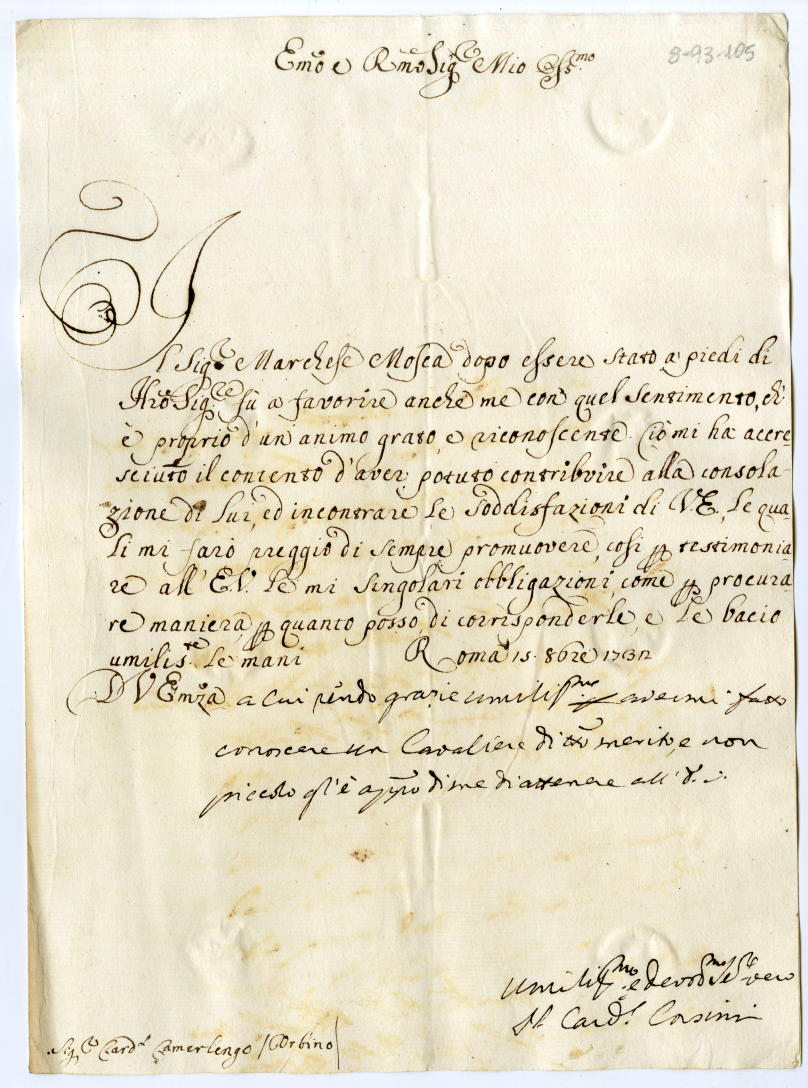 8-93-105
Emo e Rmo Sigre Mio Ossmo
Il Sigre Marchese Mosca dopo essere stato a piedi di
Nro Sigre fù a favorire anche me con quel sentimento, ch'
è proprio d'un animo grato, e riconoscente. Ciò mi ha accre
sciuto il contento d'aver potuto contribuire alla consola-
zione di Lui, ed incontrare le soddisfazioni di V.E., le qua
li mi farò preggio di sempre promuovere, così p testimonia
re all' E.V. le mi singolari obbligazioni, come p procura
re maniera, p quanto posso di corrisponderle, e le bacio
umilisre le mani Roma 15. 8bre 1732
D V Emza a cui rendo grazie umilissme p avermi fatto
conoscere un Cavaliere di tto merito, e non
piccolo è appo di me di attenere all' V.E.
umilissmo e devotmo Sre vero
Il Cardl Corsini
Sigre Cardl Camerlengo /Urbino/